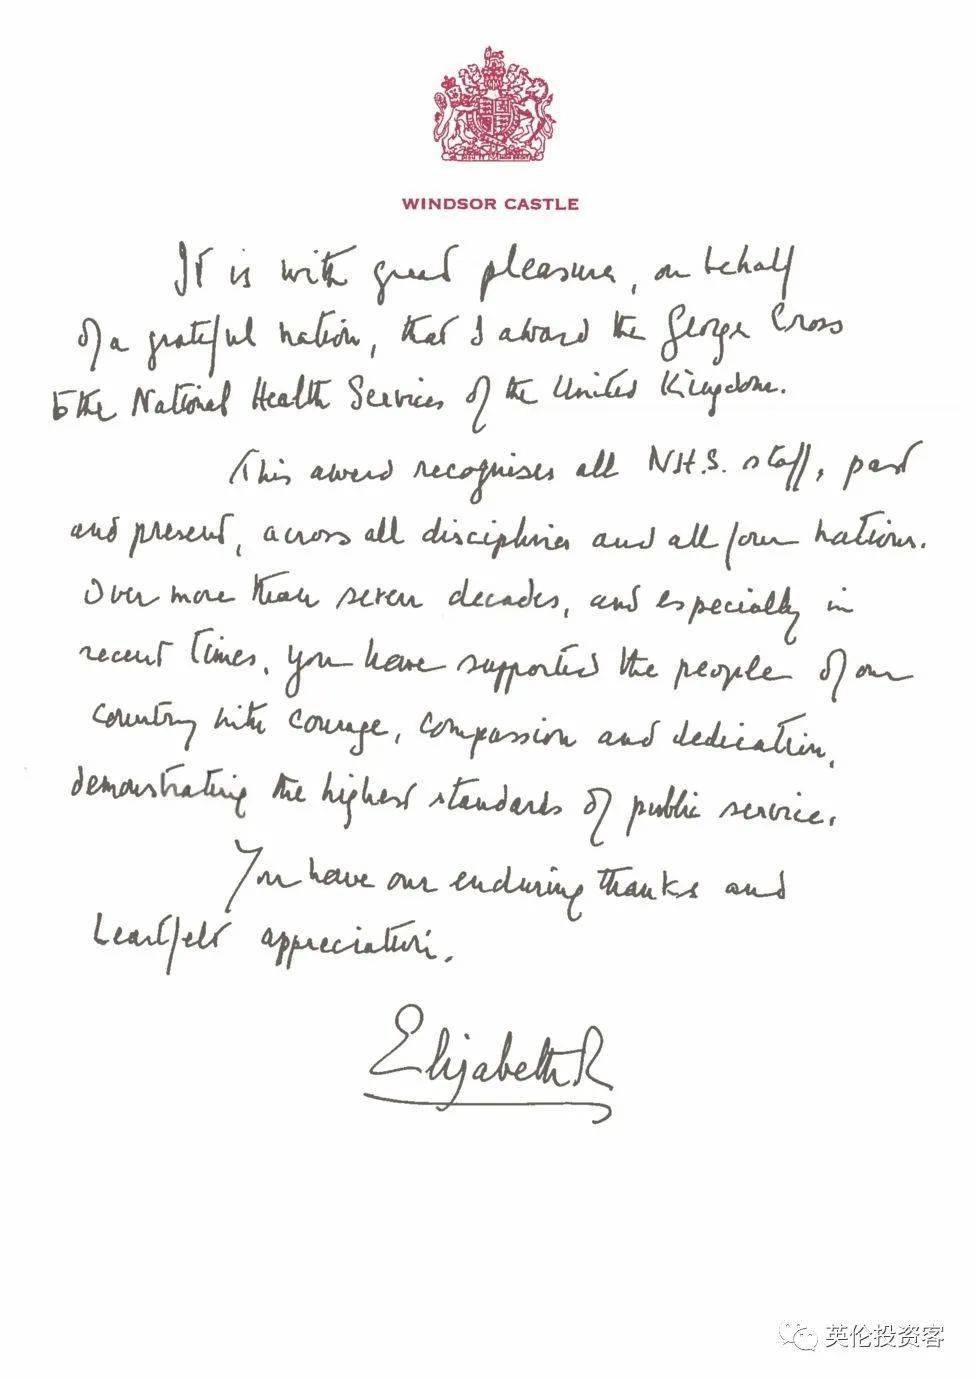 WINDSOR CASTLE
It is with great pleasure, on behalf
of a grateful nation, that I award the George Cross
to the National Health Services of the United Kingdom.
This award recognises all N.H.S. staff, past
and present, across all disciplines and all four nations.
Over more than seven decades, and especially in
recent times, you have supported the people of our
country with courage, compassion and dedication,
demonstrating the highest standards of public service.
You have our enduring thanks and
heartfelt appreciation.
Elizabeth R
英伦投资客